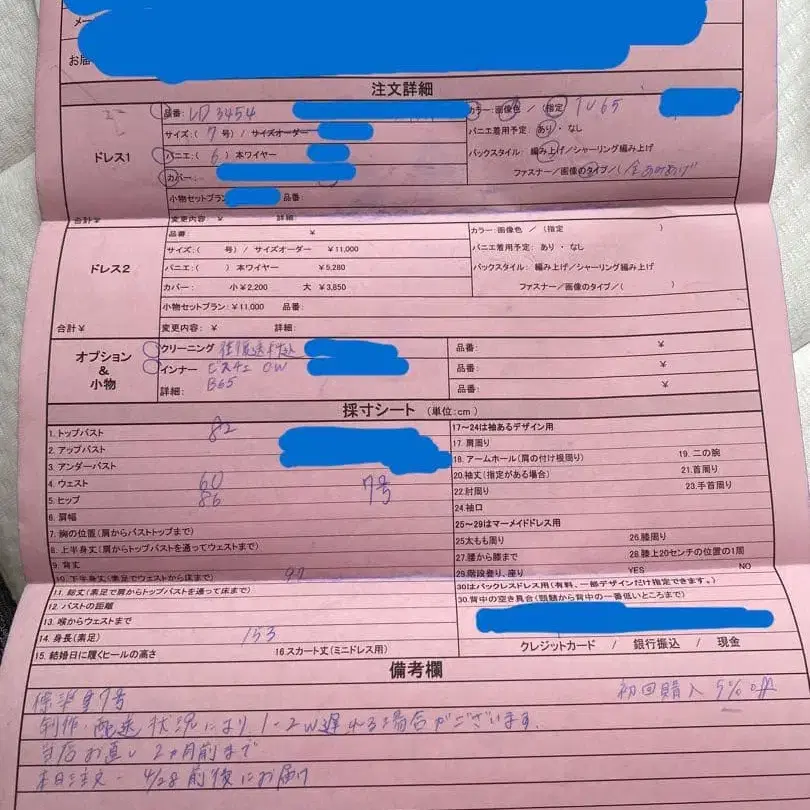 メー
お届
注文詳細
ドレス1
品番: LD3454
カラー: 画像色 / (指定 TU65
サイズ: ( 7 号) / サイズオーダー
パニエ着用予定: あり ・ なし
パニエ: ( 6 ) 本ワイヤー
バックスタイル: 編み上げ/シャーリング編み上げ
カバー:
ファスナー/画像のタイプ/(
小物セットプラン 品番
合計¥
変更内容: ¥ 詳細:
ドレス2
品番: ¥
カラー: 画像色 / (指定 )
サイズ: ( 号) / サイズオーダー ¥11,000
パニエ着用予定: あり ・ なし
パニエ: ( ) 本ワイヤー ¥5,280
バックスタイル: 編み上げ/シャーリング編み上げ
カバー: 小¥2,200 大 ¥3,850
ファスナー/画像のタイプ/( )
小物セットプラン: ¥11,000 品番:
合計¥
変更内容: ¥ 詳細:
オプション
&
小物
クリーニング 往復送料込
品番: ¥
インナー ビスチェ OW
品番: ¥
詳細: B65
品番: ¥
採寸シート (単位:cm)
1. トップバスト 82
2. アップバスト
3. アンダーバスト
4. ウェスト 60
5. ヒップ 86 7号
6. 肩幅
7. 胸の位置(肩からバストトップまで)
8. 上半身丈(肩からトップバストを通ってウェストまで)
9. 背丈
10. 下半身丈(素足でウェストから床まで) 97
11. 総丈(素足で肩からトップバストを通って床まで)
12. バストの距離
13. 喉からウェストまで
14. 身長(素足) 153
15. 結婚日に履くヒールの高さ 16.スカート丈(ミニドレス用)
17〜24は袖あるデザイン用
17. 肩周り
18. アームホール(肩の付け根周り) 19. 二の腕
20. 袖丈(指定がある場合) 21.首周り
22. 肘周り 23.手首周り
24. 袖口
25〜29はマーメイドドレス用
25太もも周り 26.膝周り
27.腰から膝まで 28.膝上20センチの位置の1周
29.階段登り、座り YES NO
30はバックレスドレス用(有料、一部デザインだけ指定できます。)
30. 背中の空き具合(頸椎から背中の一番低いところまで)
クレジットカード / 銀行振込 / 現金
備考欄
標準型7号
初回購入 5%off
制作・配送状況により、1-2W遅れる場合がございます.
当店お直し 2ヵ月前まで
本日注文 - 4/28前後にお届け